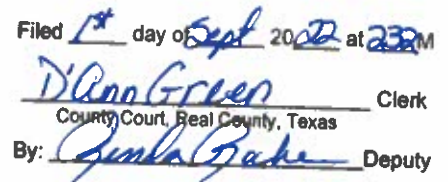 Filed 1st day of Sept 2022 at 232 M
D'Ann Green Clerk
County Court, Real County, Texas
By: Deputy